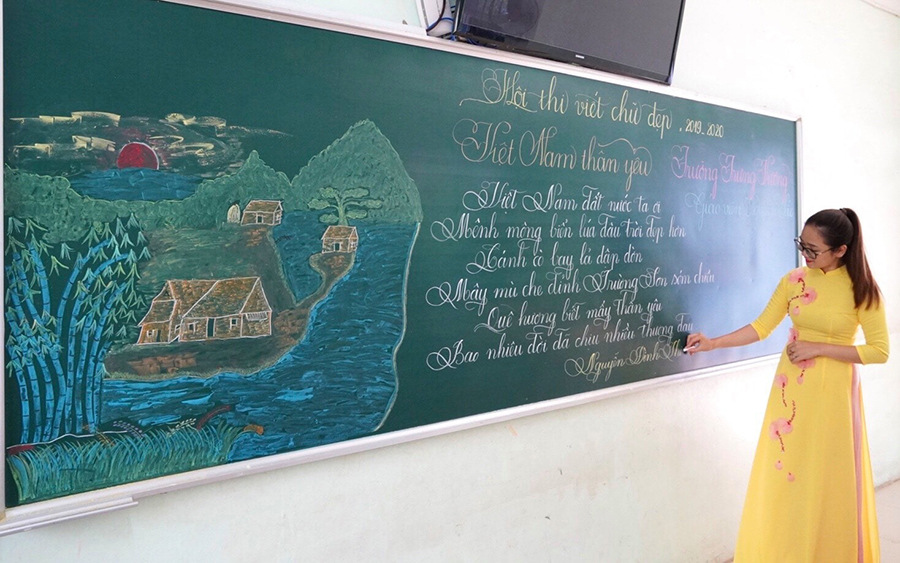 Hội thi viết chữ đẹp . 2019_2020
Việt Nam thân yêu
Trường Trưng Vương
Giáo viên
Việt Nam đất nước ta ơi
Mênh mông biển lúa đâu trời đẹp hơn
Cánh cò bay lả dập dờn
Mây mù che đỉnh Trường Sơn sớm chiều
Quê hương biết mấy thân yêu
Bao nhiêu đời đã chịu nhiều thương đau
Nguyễn Đình